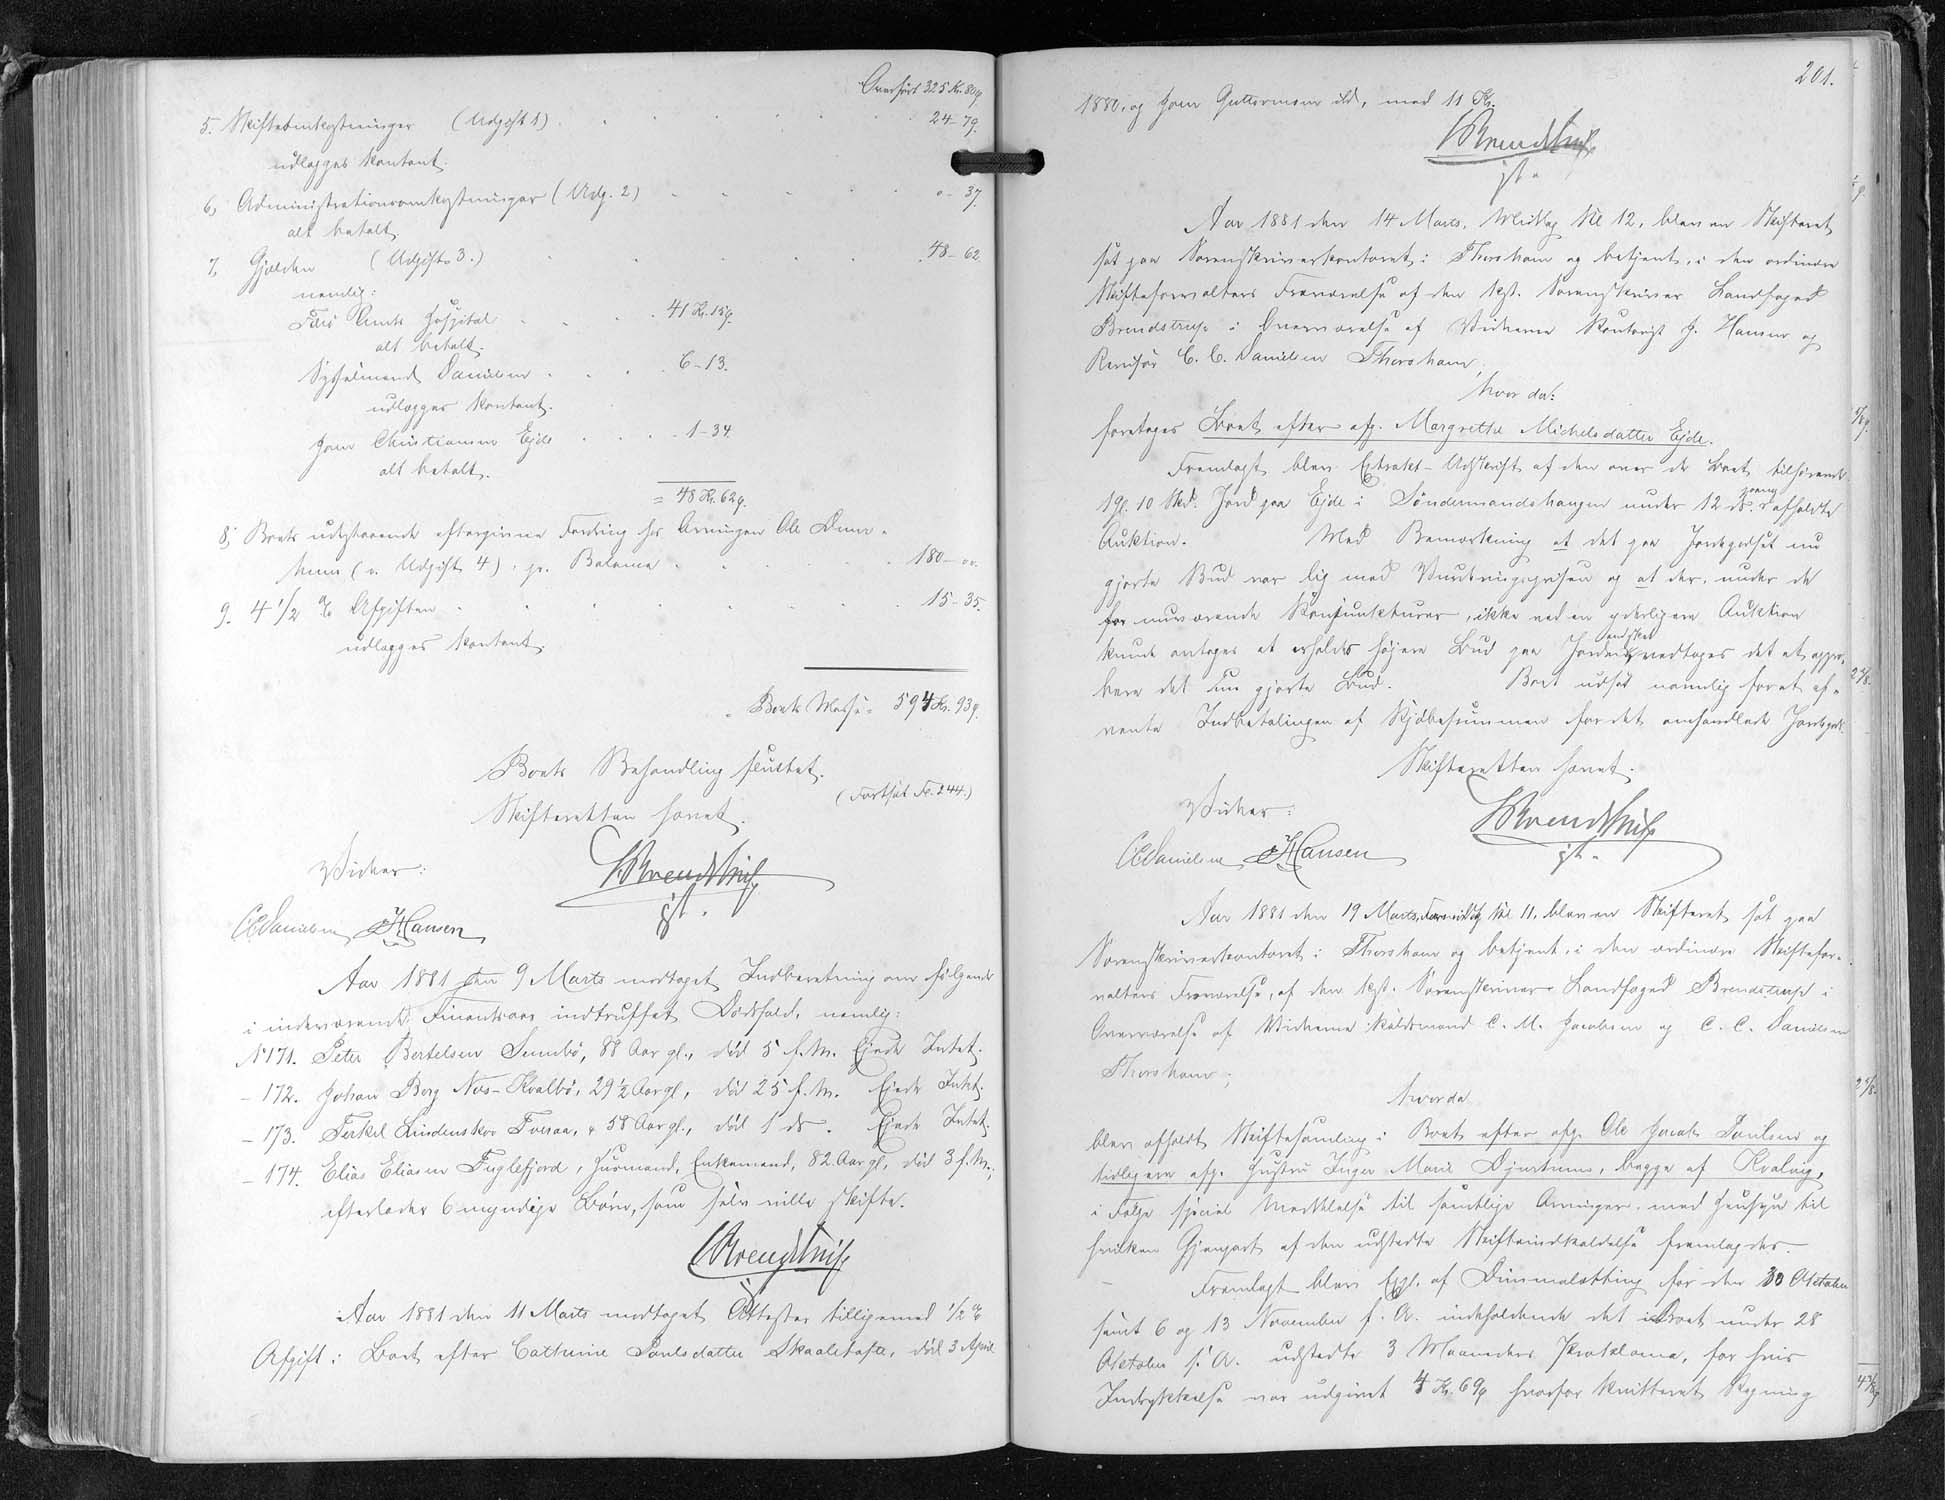 Overført 325 Kr. 80 ø.
5. Skifteomkostninger (Udgift 1) . . . . . . 24 - 79.
udlægges kontant.
6, Administrationsomkostninger (Udg. 2) . . . . . 0 - 37.
alt betalt
7, Gjælden (Udgift 3.) . . . . . . 48 - 62.
nemlig:
Færø Amts Hospital . . . 41 Kr. 15 ø.
alt betalt.
Sysselmand Danielsen . . . 6 - 13.
udlægges kontant.
Joen Christiansen Ejde . . . . 1 - 34.
alt betalt.
= 48 Kr. 62 ø.
8, Boets udestaaende eftergivne Fordring hos Arvingen Ole
(v. Udgift 4), pr. Balance . . . . . 180 - 00.
9. 4 1/2 % Afgiften . . . . . . . 15 - 35.
udlægges kontant.
= Boets Masse = 594 Kr. 93 ø.
Boets Behandling sluttet.
(Fortsat Fo. 244.)
Skifteretten hævet.
Vidner:
Brendstrup
CCDanielsen JHansen
gst.
Aar 1881 den 9 Marts modtaget Indberetning om følgende
i indeværende Finantsaar indtruffet Dødsfald, nemlig:
N 171. Peter Bertelsen Sumbø, 88 Aar gl., død 5 f. M. Ejede Intet.
- 172. Johan Berg Næs-Kvalbø, 29 1/2 Aar gl, død 25 f. M. Ejede Intet.
- 173. Terkel Lindenskov Tveraa, 58 Aar gl., død 1 ds. Ejede Intet.
- 174. Elias Eliasen Fuglefjord, Huusmand, Enkemand, 82 Aar gl, død 3 f. M.;
efterlader 6 myndige Børn, som selv ville skifte.
Brendstrup
Aar 1881 den 11 Marts modtaget Attester tilligemed 1/2 %
Afgift i Boet efter Cathrine Poulsdatter Skaaletofte, død 3 April
201.
1880, og Joen Guttormsen ibd, med 11 Kr.
Brendstrup
gst.
Aar 1881 den 14 Marts, Middag Kl 12, blev en Skifteret
sat paa Sorenskriverkontoret i Thorshavn og betjent, i den ordinære
Skifteforvalters Fraværelse af den kst. Sorenskriver Landfoged
Brendstrup i Overværelse af Vidnerne Kontorist J. Hansen og
C. C. Danielsen Thorshavn,
hvor da:
foretoges Boet efter afg. Margrethe Michelsdatter Ejde.
Fremlagt blev Extrakt-Udskrift af den over de Boet tilhørende
1 Gl. 10 Skd. Jord paa Ejde i Søndermandshaugen under 12 ds. 2 gang afholdte
Auktion. Med Bemærkning at det paa Jordegodset nu
gjorte Bud var lig med Vurderingsprisen og at der, under de
for nuværende Konjunkturer, ikke ved en yderligere Auktion
kunde antages at erholdes højere Bud paa Jorden, vedtoges det at appro-
bere det saa gjorte Bud. Boet udsat nemlig for at af-
vente Indbetalingen af Kjøbesummen for det omhandlede Jordegods.
Skifteretten hævet.
Vidner:
Brendstrup
gst.
CCDanielsen JHansen
Aar 1881 den 19 Marts, Formiddag Kl 11, blev en Skifteret sat paa
Sorenskriverkontoret i Thorshavn og betjent, i den ordinære Skiftefor-
valters Fraværelse, af den kst. Sorenskriver Landfoged Brendstrup i
Overværelse af Vidnerne Kaldsmand C. M. Jacobsen og C. C. Danielsen
Thorshavn;
hvor da
blev afholdt Skiftesamling i Boet efter afg. Ole Jacob Poulsen og
tidligere afg. Hustru Inger Marie Djurhuus, begge af Kvalvig,
i Følge special Meddelelse til samtlige Arvinger, med Hensyn til
hvilken Gjenpart af den udstedte Skifteindkaldelse fremlagdes.
Fremlagt blev Expl. af Dimmalætting for den 30 Oktober
samt 6 og 13 November f. A. indeholdende det i Boet under 28
Oktober f. A. udstedte 3 Maaneders Proklama, for hvis
Indrykkelse var udgivet 4 Kr. 69 ø hvorfor kvitteret Regning